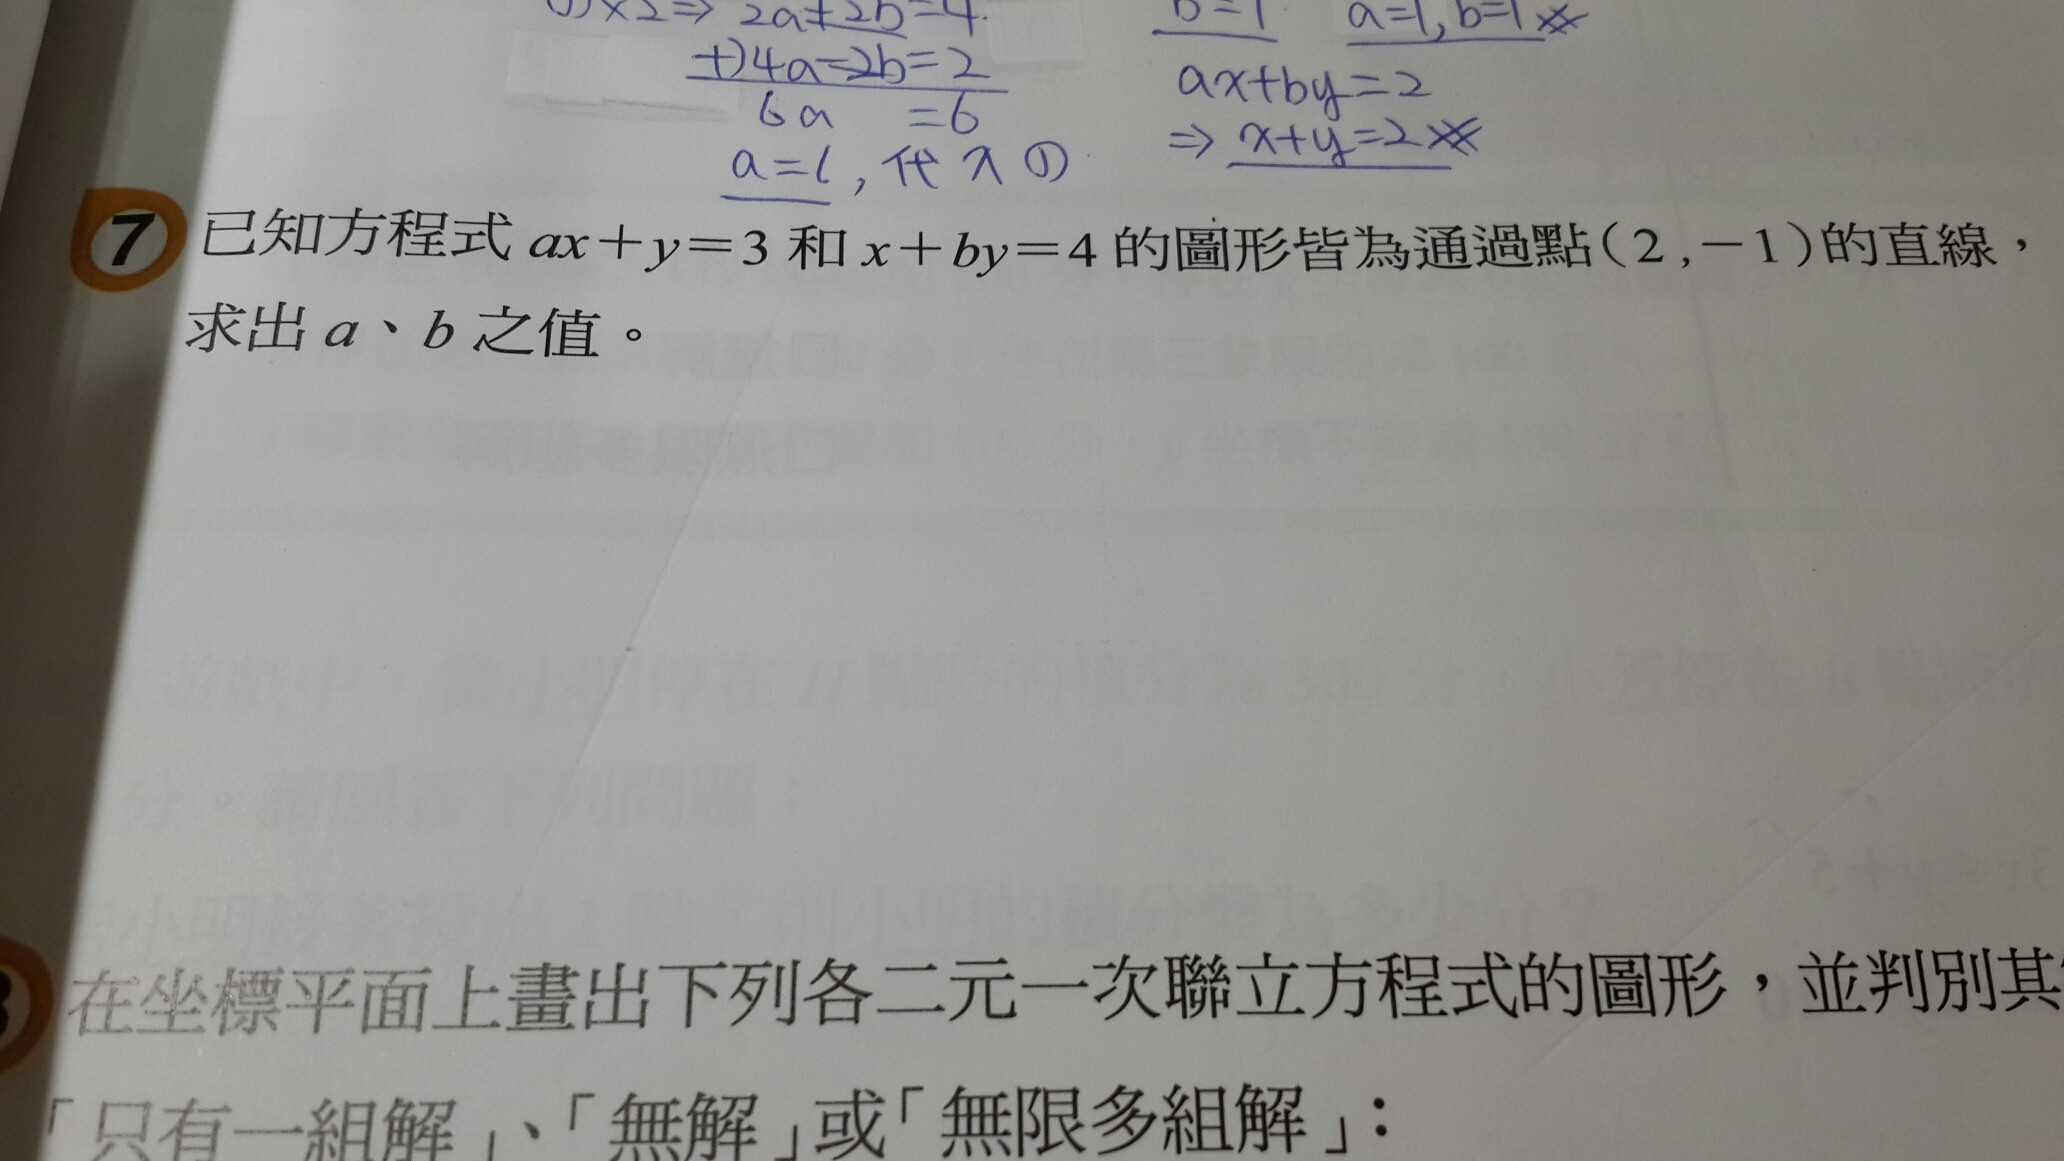 ①×2⇒ 2a+2b=4 b=1 a=1, b=1※
+)4a-2b=2 ax+by=2
6a =6 ⇒ x+y=2※
a=1, 代入①
7 已知方程式 ax+y=3 和 x+by=4 的圖形皆為通過點(2,-1)的直線，
求出 a、b 之值。
在坐標平面上畫出下列各二元一次聯立方程式的圖形，並判別其
「只有一組解」、「無解」或「無限多組解」：